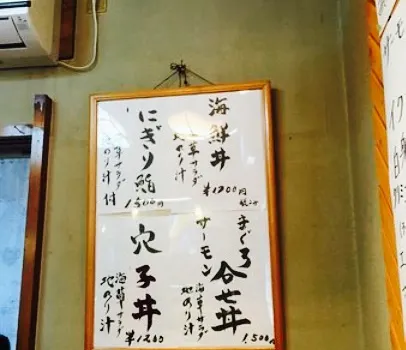 海鮮丼
海草サラダ
地のり汁
¥1700円
にぎり鮨
海草サラダ
地のり汁 付
1500円
まぐろ
サーモン
合せ丼
海草サラダ
地のり汁
1,500円
穴子丼
海草サラダ
地のり汁
¥1200
サーモ
イク